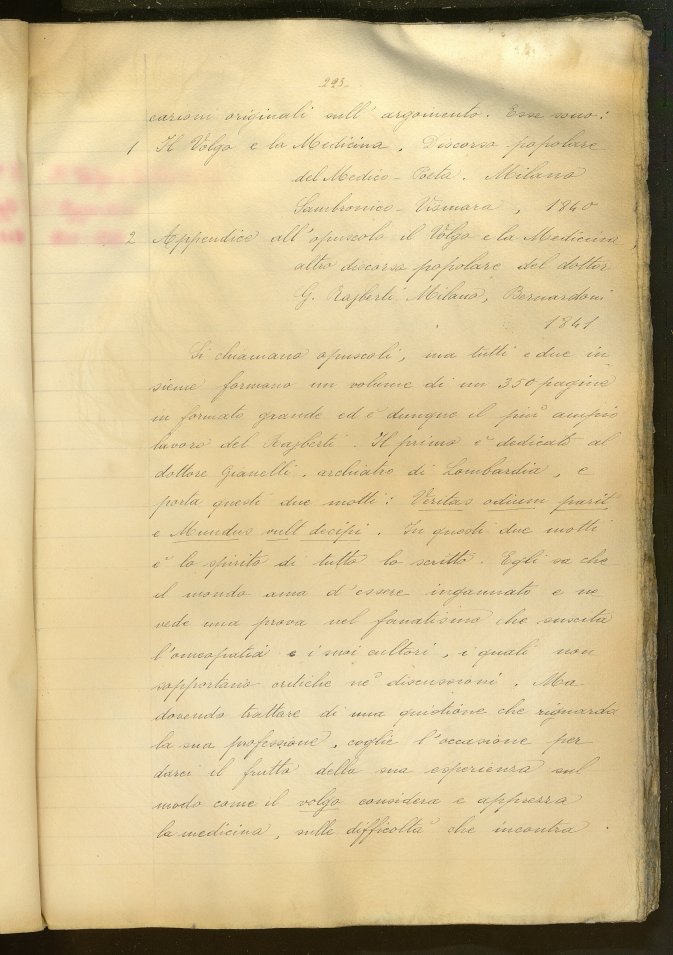 293
cazioni originali sull'argomento. Esse sono:
1 Il Volgo e la Medicina, Discorso popolare
del Medico-Poeta. Milano
Sambronico-Vismara, 1840
2 Appendice all'opuscolo il Volgo e la Medicina,
altro discorso popolare del dottor
G. Rajberti Milano, Bernardoni
1841
Si chiamano opuscoli, ma tutti e due in
sieme formano un volume di un 350 pagine
in formato grande ed è dunque il più ampio
lavoro del Rajberti. Il primo è dedicato al
dottore Gianelli, archiatro di Lombardia, e
porta questi due motti: Veritas odium parit
e Mundus vult decipi. In questi due motti
è lo spirito di tutto lo scritto. Egli sa che
il mondo ama d'essere ingannato e ne
vede una prova nel fanatismo che suscita
l'omeopatia e i suoi cultori, i quali non
sopportano critiche nè discussioni. Ma
dovendo trattare di una quistione che riguarda
la sua professione, coglie l'occasione per
darci il frutto della sua esperienza sul
modo come il volgo considera e apprezza
la medicina, sulle difficoltà che incontra